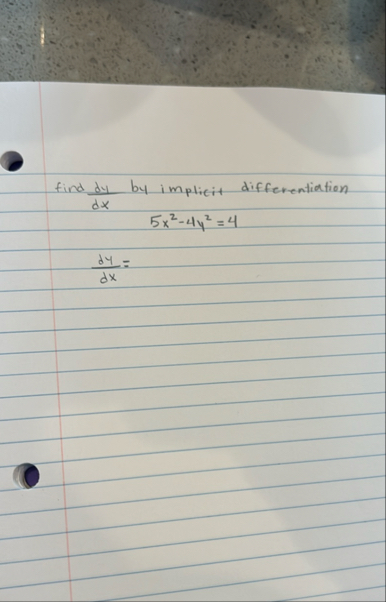 find dy/dx by implicit differentiation
5x²-4y²=4
dy/dx =